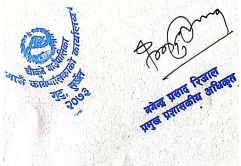 चौकुने गाउँपालिका
गाउँ कार्यपालिकाको कार्यालय
सुर्खेत
२०७३
नगेन्द्र प्रसाद रिजाल
प्रमुख प्रशासकीय अधिकृत